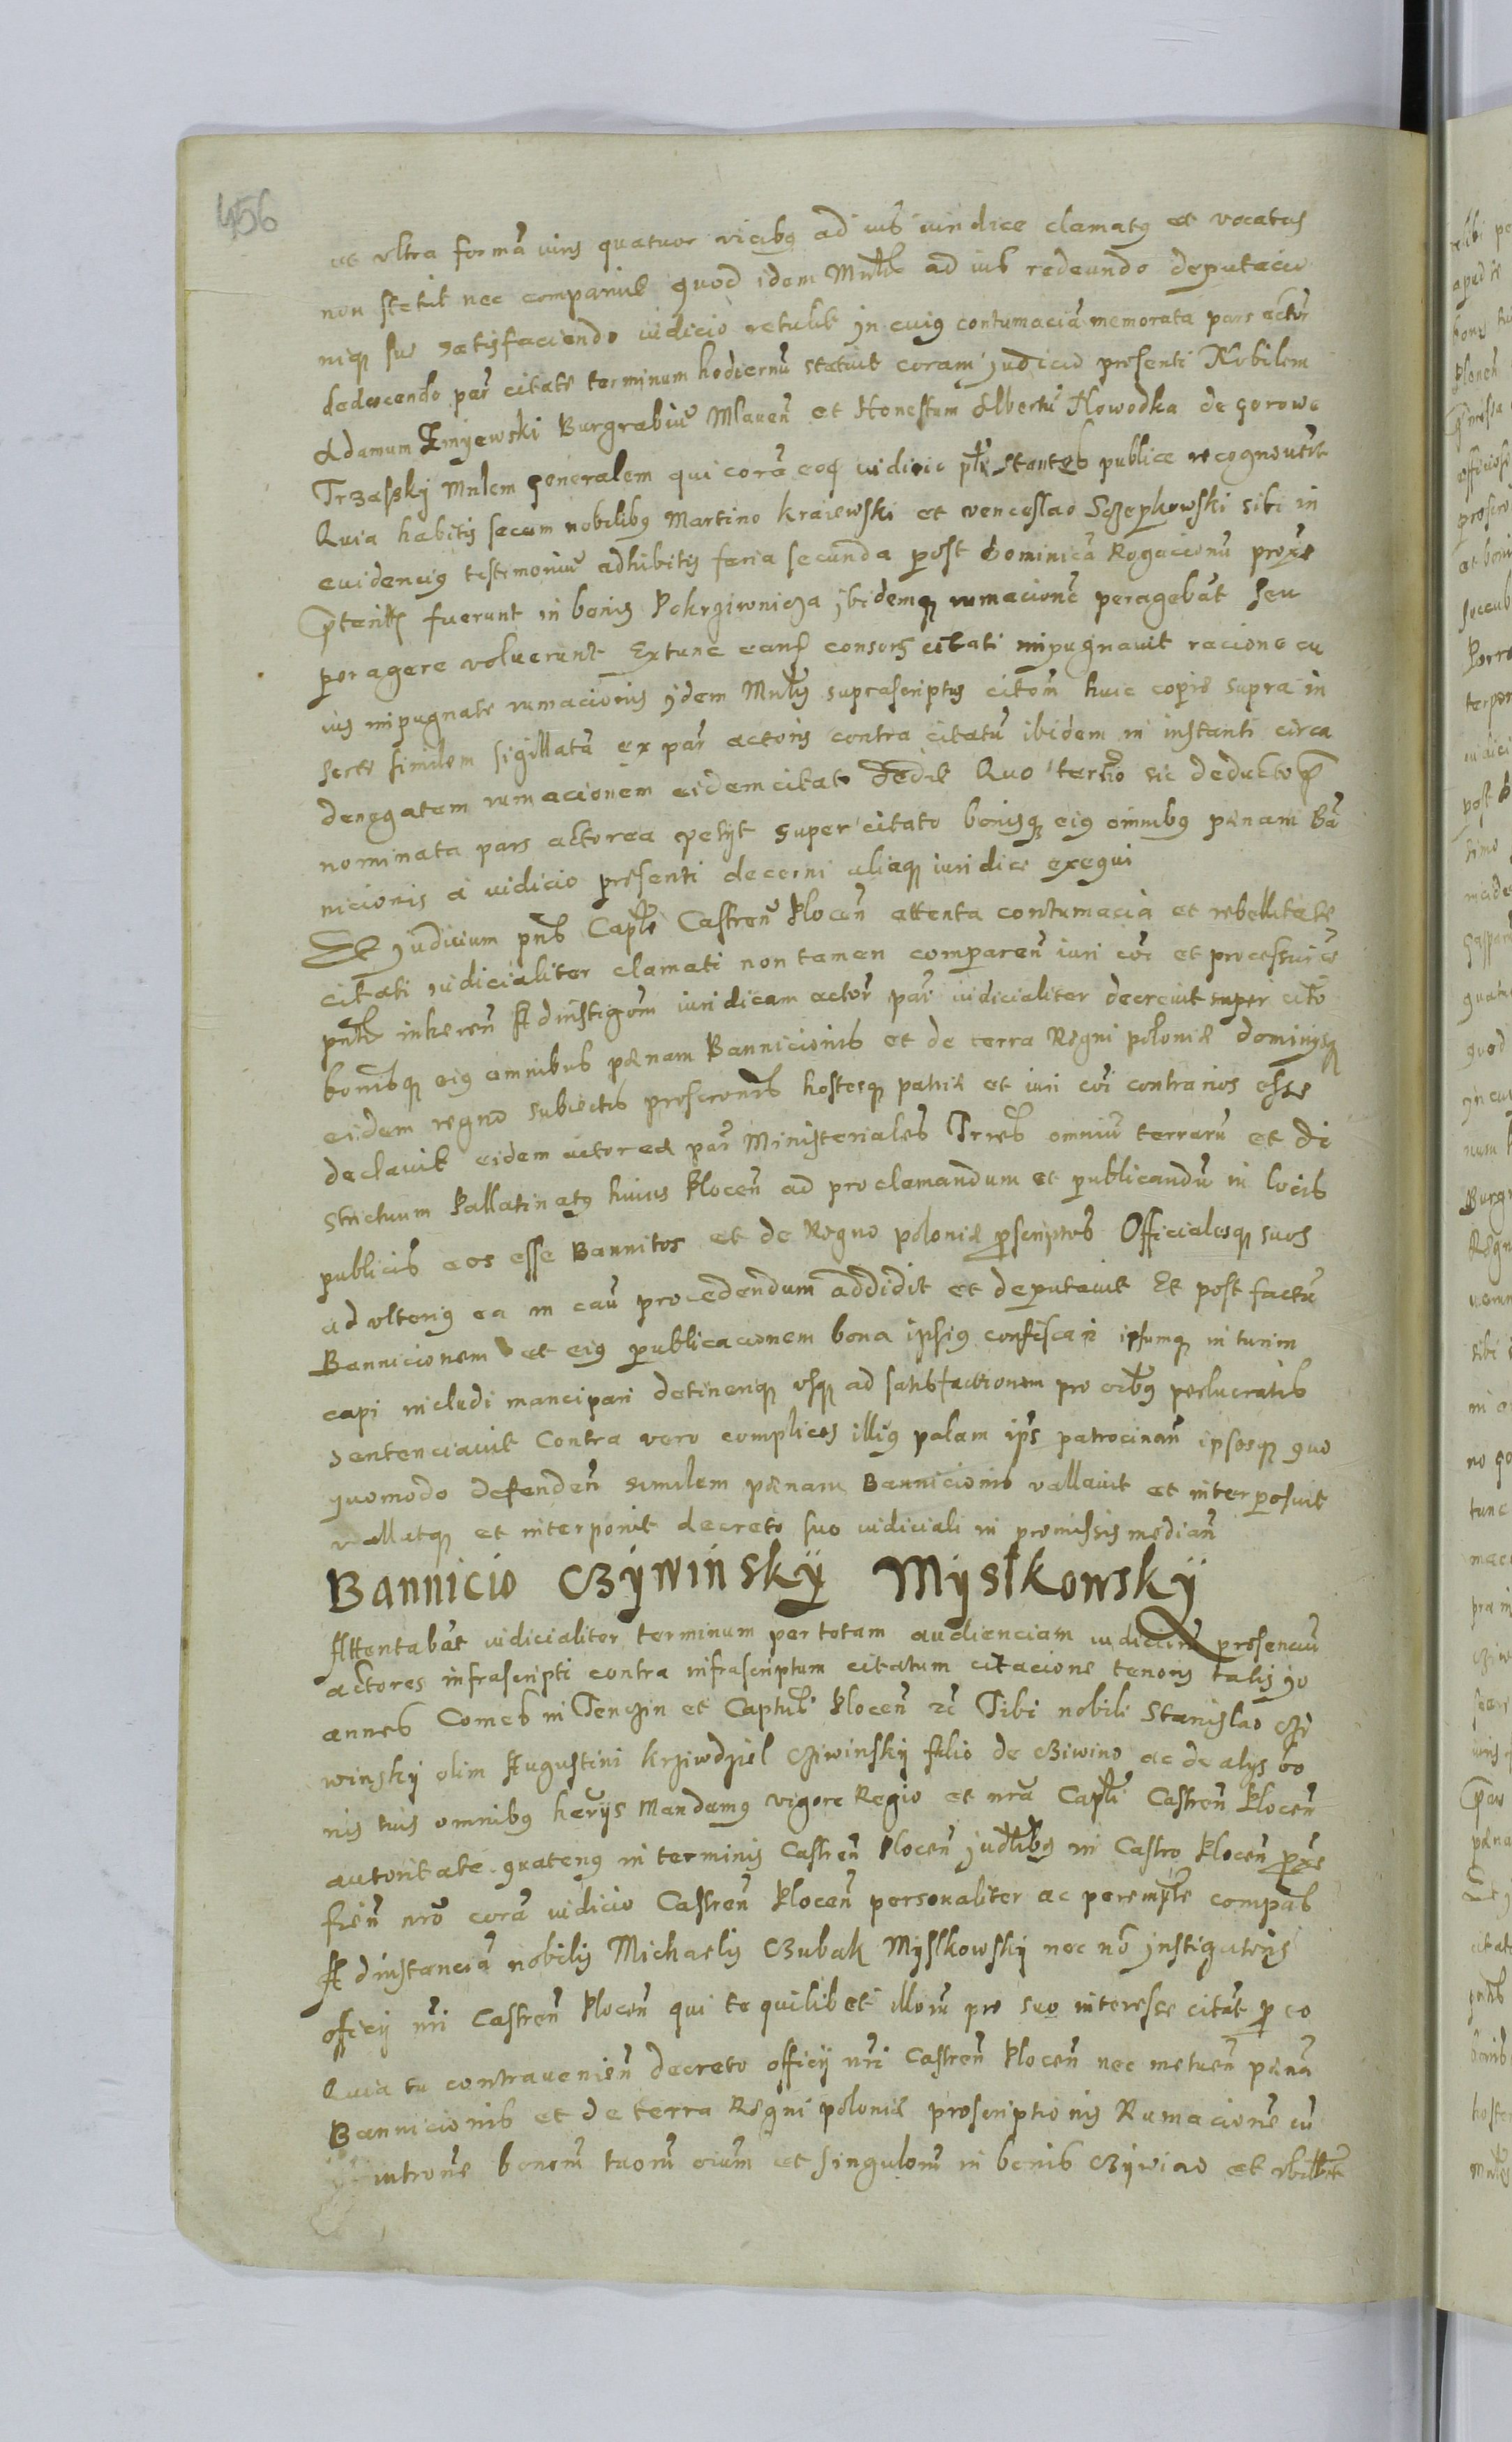 456
et vltra formã iuris quatuor vicibꝯ ad ius iuridice clamatꝯ et vocatus
non stetit nec comparuit quod idem Mnlis ad ius redeundo deputacio
niqꝫ sue satisfaciendo iudicio retulit in cuiꝯ contumaciã memorata pars actor
deducendo par citate terminum hodiernũ statuit coram judicio presenti Nobilem
Adamum Zmijewski Burgrabiũ Mlauen̄ et Honestum Albertũ Nowodka de Gorowo
Trzassky Mnlem generalem qui corã eoď iudicio stantes publice recognouerũt
Quia habitis secum nobilibꝯ Martino Kraiewski et venceslao Szczepkowski sibi in
euidenciꝯ testimoniũ adhibitis feria secunda post dominicã Rogacionũ proxe
fuerunt in bonis Pokrziwnicza ibidemqꝫ rumacionẽ peragebãt seu
peragere voluerunt Extunc eanď consors citati impugnauit racione cu
ius impugnate rumacionis idem Mnlis suprascriptus citom̄ huic copie supra in
serte similem sigillatã ex par actoris contra citatũ ibidem in instanti circa
denegatam rumacionem eidem citato dedit Quo termo sic deducto p̄
nominata pars actorea petijt super citato bonisqꝫ eiꝯ omnibꝯ pænam Bã
nicionis a iudicio presenti decerni aliaqꝫ iuridice exequi
Et judicium pns Caple Castren̄ Plocen̄ attenta contumacia et rebellitate
citati iudicialiter clamati non tamen comparen̄ iuri coi et processui
inheren̄ Ad instigom̄ iuridicam actor par iudicialiter decreuit super cito
bonisqꝫ eiꝯ omnibus pænam Bannicionis et de terra Regni poloniæ dominijsqꝫ
eidem regno subiectis proscronis hostesqꝫ patriæ et iuri coi contrarios esse
declarauit eidem actoreæ par Ministeriales Trres omniũ terrarũ et di
strictuum Pallatinatꝯ huius Plocen̄ ad proclamandum et publicandũ in locis
publicis eos esse Bannitos et de Regno poloniæ pscriptos Officialesqꝫ suos
ad vlteriꝯ ea in cau procedendum addidit et deputauit Et post factã
Bannicionem et eiꝯ publicacionem bona ipsiꝯ confiscari ipsumqꝫ in turim
capi includi mancipari detineriqꝫ vsqꝫ ad satisfactionem pro oibꝯ perlucratis
sentenciauit Contra vero complices illiꝯ palam ips patrocinan̄ ipsosqꝫ quo
quomodo defenden̄ similem pænam Bannicionis vallauit et interposuit
vallatqꝫ et interponit decreto suo iudiciali in premissis median̄
Bannicio Czÿwinskÿ Mÿslkowskÿ
Attentabãt iudicialiter terminum per totam audienciam iudiciorũ presenciũ
actores infrascripti contra infrascriptum citatum citacione tenoris talis Jo
annes Comes in Tenczin et Captus Plocen̄ zc̄ Tibi nobili Stanislao Czi
winskÿ olim Augustini Krziwdziel Cziwinskÿ filio de Cziwino ac de alijs bo
nis tuis omnibꝯ herijs Mandamꝯ vigore Regio et nrã Capli Castren̄ Plocen̄
autoritate quatenꝯ in terminis Castren̄ Plocen̄ judlibꝯ in Castro Plocen̄ pxe
fien̄ nro corã iudicio Castren̄ Plocen̄ personaliter ac peremple compas
Ad instanciã nobilis Michaelis Czubak Mÿslkowskÿ nec nõ jnstigatoris
officij nri Castren̄ Plocen̄ qui te quilibet illorũ pro suo interesse citãt p eo
Quia tu contrauenien̄ decreto officij nri Castren̄ Plocen̄ nec metuen̄ pænã
Bannicionis et de terra Regni poloniæ proscriptionis Rumacionẽ cũ
introne bonorũ tuorũ oium et singulorũ in bonis Czÿwino et vbilibet